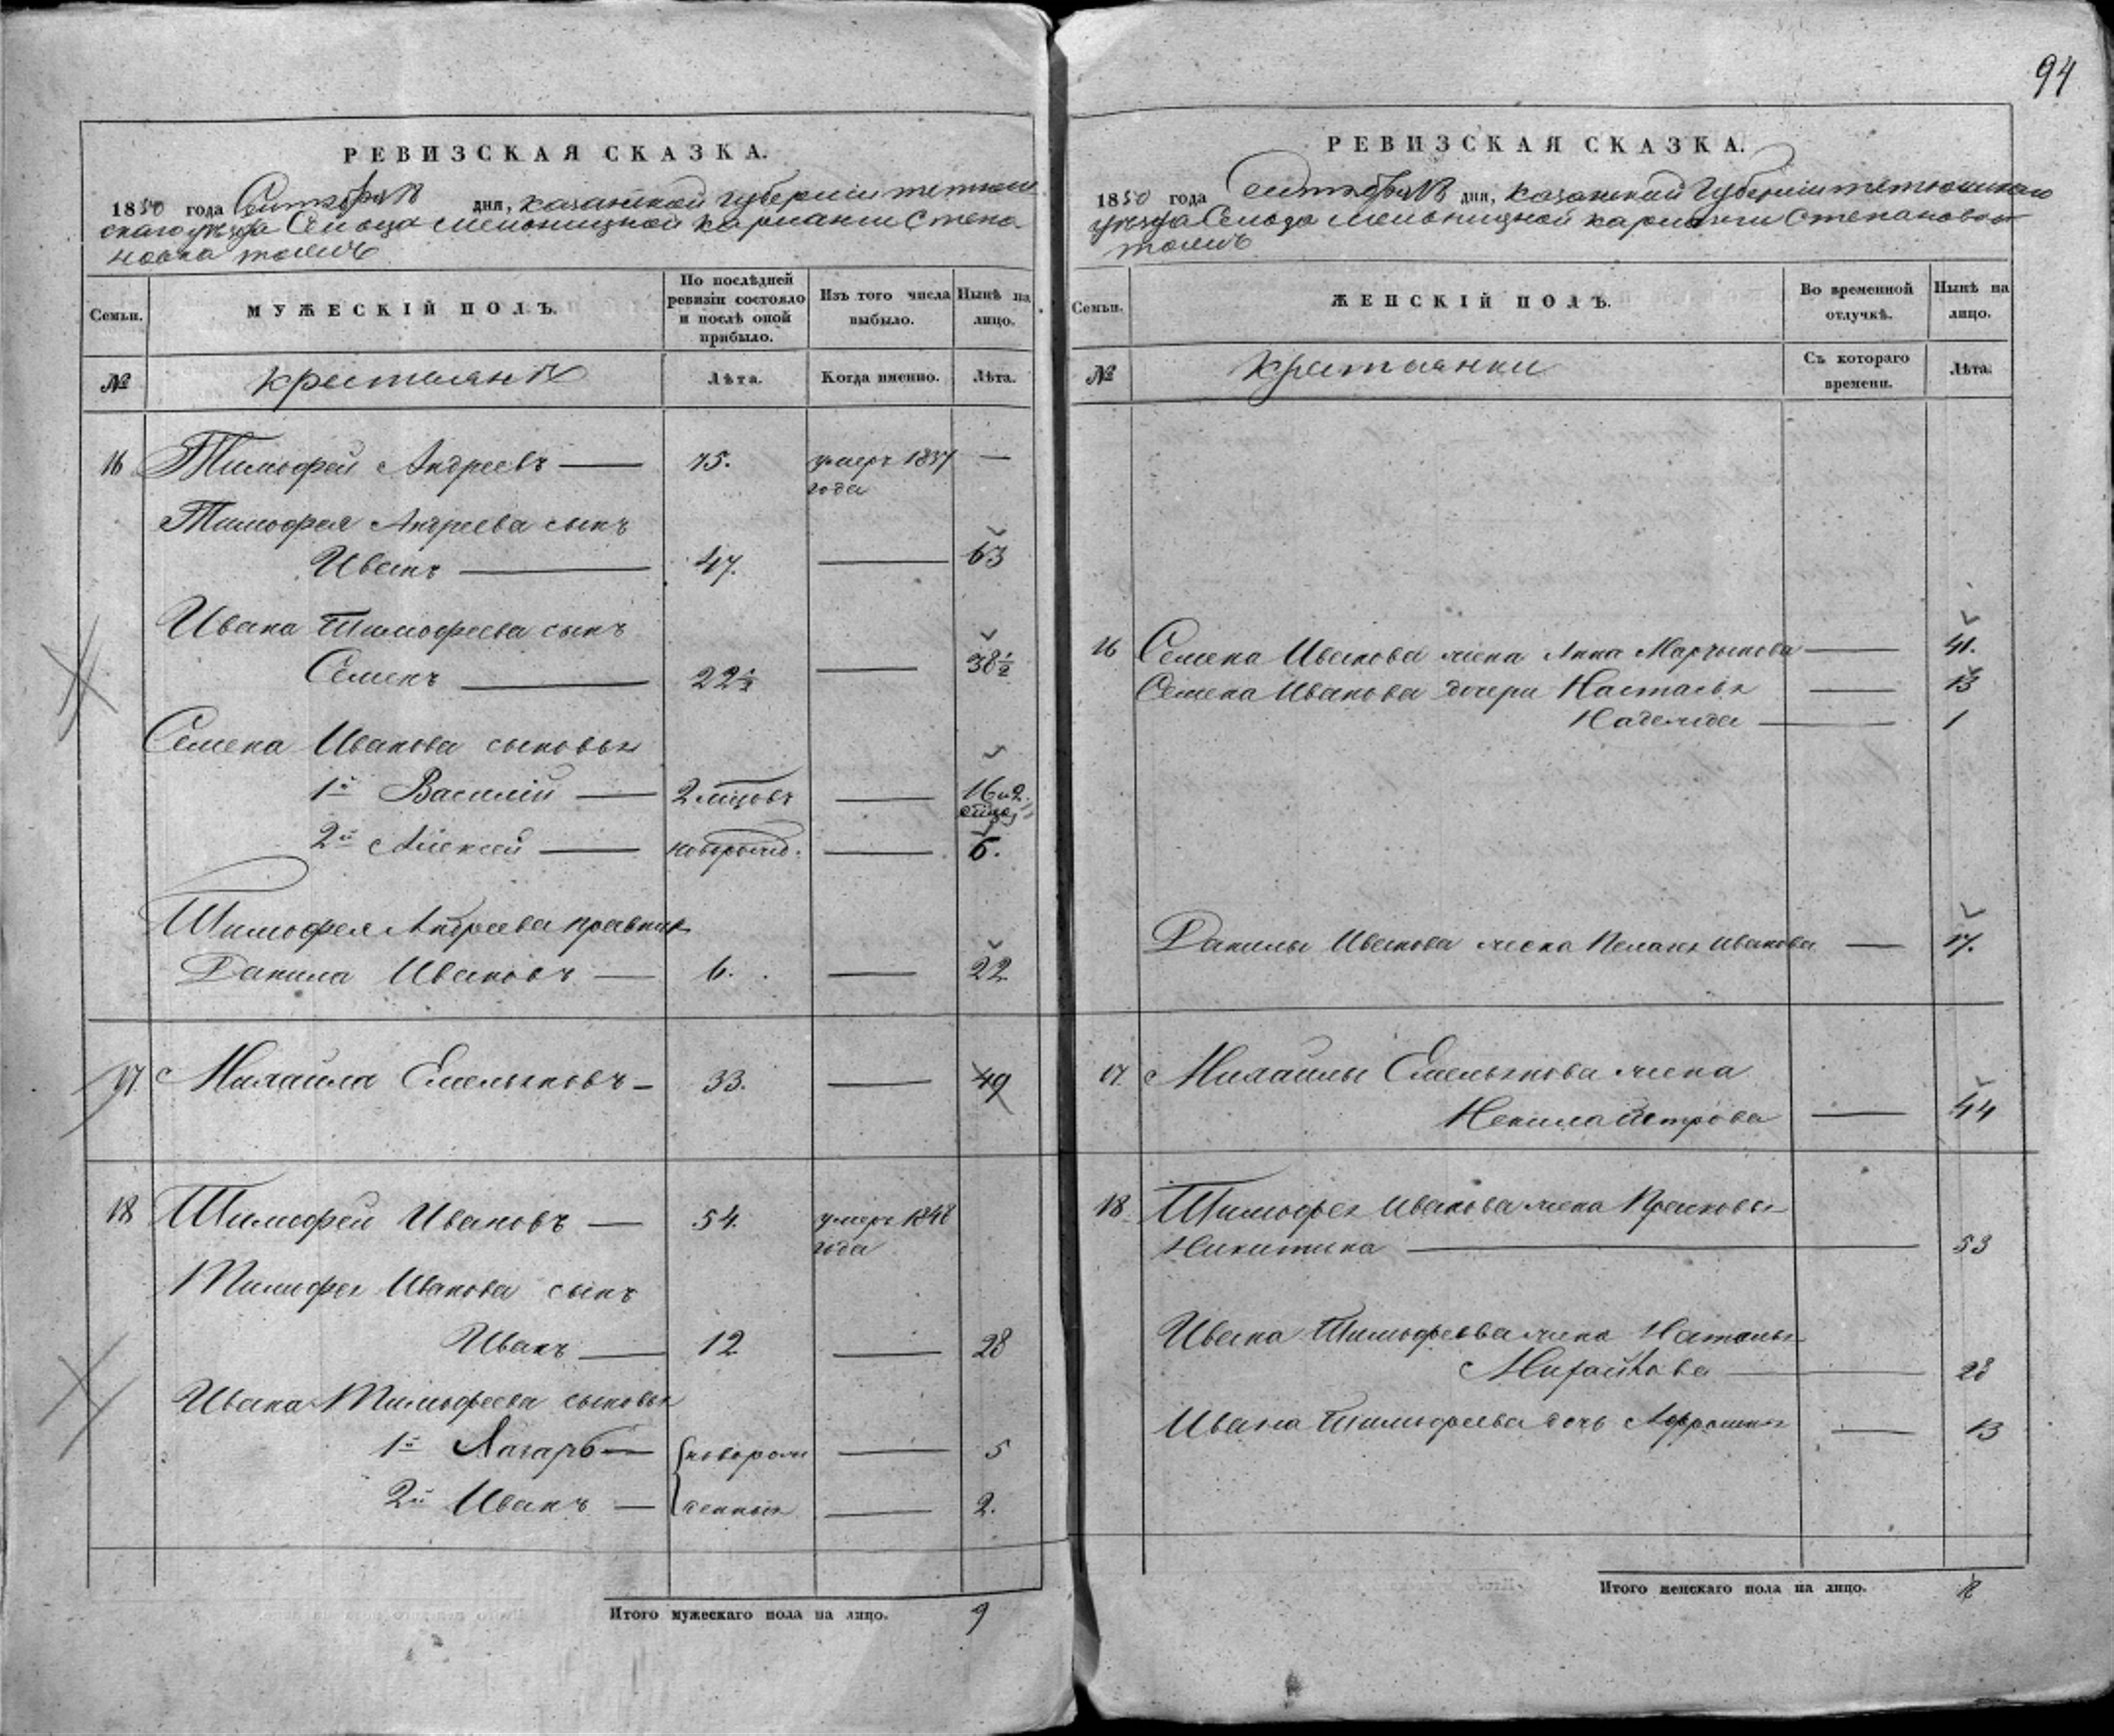 94
РЕВИЗСКАЯ СКАЗКА.
1850 года Сентября дня, Казанской губерніи Тетюш
скаго уѣзда Сельца Мельницкой Карланги Степа
новка тожъ
Семьи. МУЖЕСКІЙ ПОЛЪ. По послѣдней ревизіи состояло и послѣ оной прибыло. Изъ того числа выбыло. Нынѣ на лицо.
№ Крестьянѣ Лѣта. Когда именно. Лѣта.
16 Тимофей Андреевъ — 75. умеръ 1837 —
года
Тимофея Андреева сынъ
Иванъ — 47. — 63
Ивана Тимофеева сынъ
Семенъ — 22½ — 38½
Семена Иванова сыновья
1й Василій — 2 мѣцовъ — 16 и 2
2й Алексей — новорожд. — 6.
Тимофея Андреева правнук
Данила Ивановъ — 6. — 22
17 Михайла Емельяновъ — 33. — 49
18 Тимофей Ивановъ — 54. умеръ 1848
года
Тимофея Иванова сынъ
Иванъ — 12 — 28
Ивана Тимофеева сыновья
1й Лазарь — новорож — 5
2й Иванъ — денныя — 2.
Итого мужескаго пола на лицо. 9
РЕВИЗСКАЯ СКАЗКА.
1850 года Сентября дня, Казанской Губерніи Тетюшскаго
уѣзда Сельца Мельницкой Карланги Степановка
тожъ
Семьи. ЖЕНСКІЙ ПОЛЪ. Во временной отлучкѣ. Нынѣ на лицо.
№ Крестьянки Съ котораго времени. Лѣта.
16 Семена Иванова жена Анна Мартынова — 41.
Семена Иванова дочери Настасья — 13
Надежда — 1
Данилы Иванова жена Пелагея Иванова — 17.
17. Михайлы Емельянова жена
Ненила Петрова — 44
18. Тимофея Иванова жена Прасковья
Никитина — 53
Ивана Тимофеева жена Наталья
Михайлова — 28
Ивана Тимофеева дочь Афросинья — 13
Итого женскаго пола на лицо.